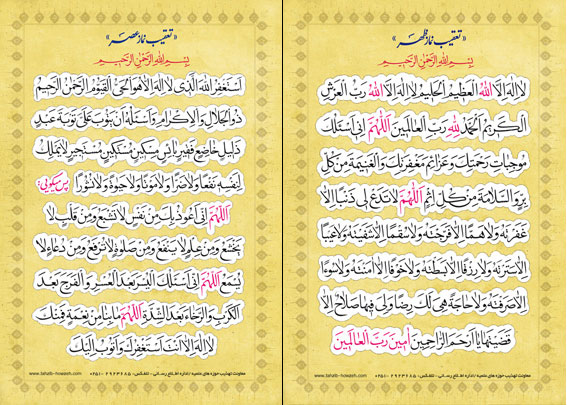 « تعقیب نماز ظهر »
بِسْمِ اللهِ الرَّحْمٰنِ الرَّحِيمِ
لا اِلٰهَ اِلَّا اللهُ الْعَظيمُ الْحَليمُ لا اِلٰهَ اِلَّا اللهُ رَبُّ الْعَرْشِ
الْكَريمُ الْحَمْدُ لِلّٰهِ رَبِّ الْعالَمينَ اَللّٰهُمَّ اِنّي اَسْئَلُكَ
مُوجِباتِ رَحْمَتِكَ وَعَزائِمَ مَغْفِرَتِكَ وَالْغَنيمَةَ مِنْ كُلِّ
بِرٍّ وَالسَّلامَةَ مِنْ كُلِّ اِثْمٍ اَللّٰهُمَّ لا تَدَعْ لي ذَنْباً اِلّا
غَفَرْتَهُ وَلا هَمّاً اِلّا فَرَّجْتَهُ وَلا سُقْماً اِلّا شَفَيْتَهُ وَلا عَيْباً
اِلّا سَتَرْتَهُ وَلا رِزْقاً اِلّا بَسَطْتَهُ وَلا خَوْفاً اِلّا امَنْتَهُ وَلا سُوءاً
اِلّا صَرَفْتَهُ وَلا حاجَةً هِيَ لَكَ رِضاً وَلِيَ فيها صَلاحٌ اِلّا
قَضَيْتَها يا اَرْحَمَ الرّاحِمينَ آمينَ رَبَّ الْعالَمينَ
معاونت تهذیب حوزه های علمیه /اداره اطلاع رسانی - تلفکس: ۲۹۲۳۶۸۵ - ۰۲۵۱ www.tahzib-howzeh.com
« تعقیب نماز عصر »
بِسْمِ اللهِ الرَّحْمٰنِ الرَّحِيمِ
اَسْتَغْفِرُ اللهَ الَّذي لا اِلٰهَ اِلّا هُوَ الْحَيُّ الْقَيُّومُ الرَّحْمٰنُ الرَّحيمُ
ذُو الْجَلالِ وَالْاِكْرامِ وَاَسْئَلُهُ اَنْ يَتُوبَ عَلَيَّ تَوْبَةَ عَبْدٍ
ذَليلٍ خاضِعٍ فَقيرٍ بائِسٍ مِسْكينٍ مُسْتَكينٍ مُسْتَجيرٍ لا يَمْلِكُ
لِنَفْسِهِ نَفْعاً وَلا ضَرّاً وَلا مَوْتاً وَلا حَيوةً وَلا نُشُوراً پس میگویی:
اَللّٰهُمَّ اِنّي اَعُوذُ بِكَ مِنْ نَفْسٍ لا تَشْبَعُ وَمِنْ قَلْبٍ لا
يَخْشَعُ وَمِنْ عِلْمٍ لا يَنْفَعُ وَمِنْ صَلوةٍ لا تُرْفَعُ وَمِنْ دُعاءٍ لا
يُسْمَعُ اَللّٰهُمَّ اِنّي اَسْئَلُكَ الْيُسْرَ بَعْدَ الْعُسْرِ وَالْفَرَجَ بَعْدَ
الْكَرْبِ وَالرَّخاءَ بَعْدَ الشِّدَّةِ اَللّٰهُمَّ ما بِنا مِنْ نِعْمَةٍ فَمِنْكَ
لا اِلٰهَ اِلّا اَنْتَ اَسْتَغْفِرُكَ وَاَتُوبُ اِلَيْكَ
معاونت تهذیب حوزه های علمیه /اداره اطلاع رسانی - تلفکس: ۲۹۲۳۶۸۵ - ۰۲۵۱ www.tahzib-howzeh.com